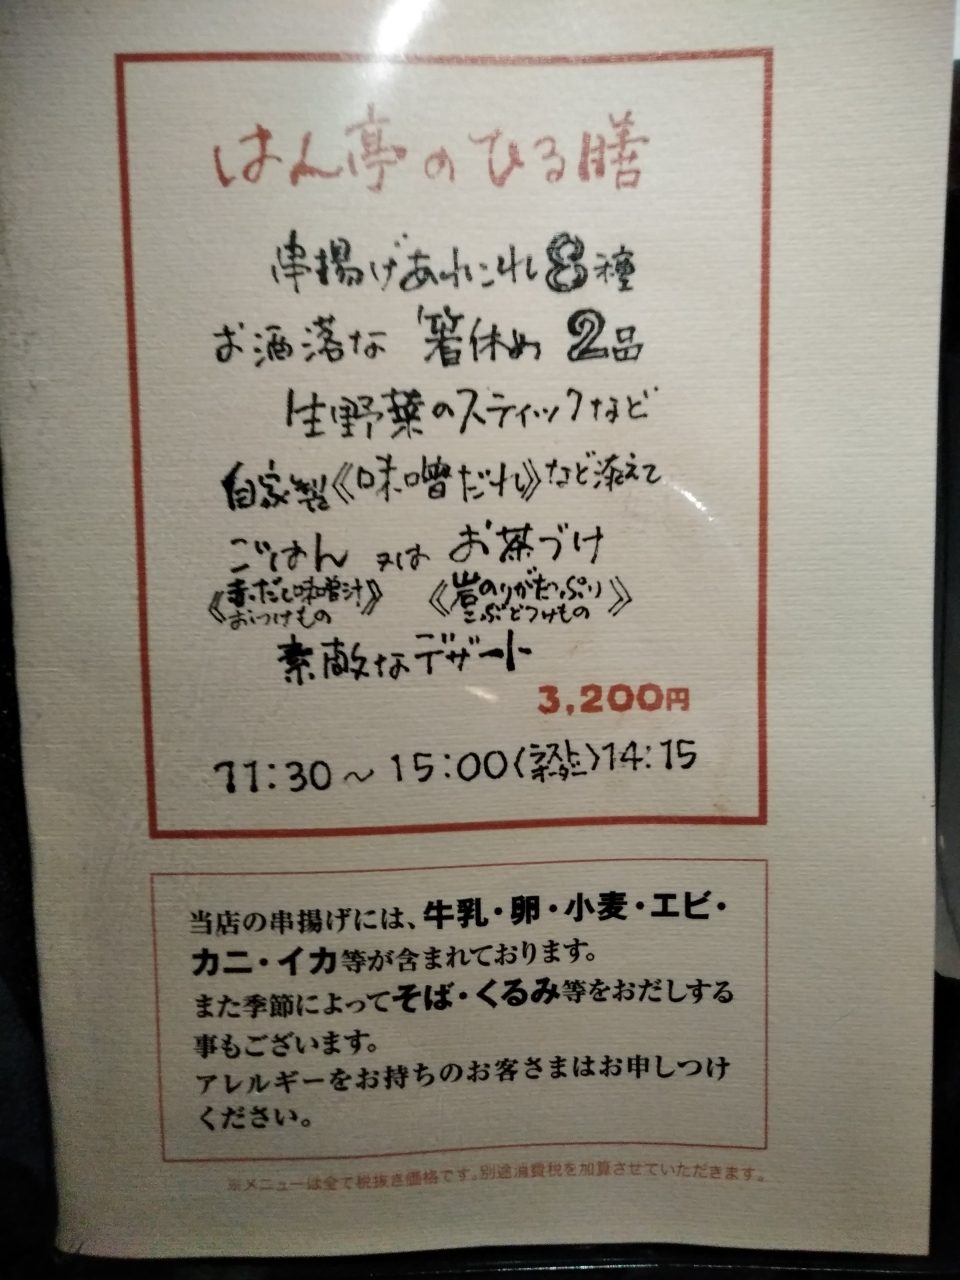 はん亭のひる膳
串揚げあれこれ8種
お洒落な 箸休め 2品
生野菜のスティックなど
自家製《味噌だれ》など添えて
ごはん 又は お茶づけ
《赤だし味噌汁 おつけもの》 《岩のりがたっぷり こぶとつけもの》
素敵なデザート
3,200円
11:30～15:00(ラストオーダー)14:15
当店の串揚げには、牛乳・卵・小麦・エビ・
カニ・イカ等が含まれております。
また季節によってそば・くるみ等をおだしする
事もございます。
アレルギーをお持ちのお客さまはお申しつけ
ください。
※メニューは全て税抜き価格です。別途消費税を加算させていただきます。